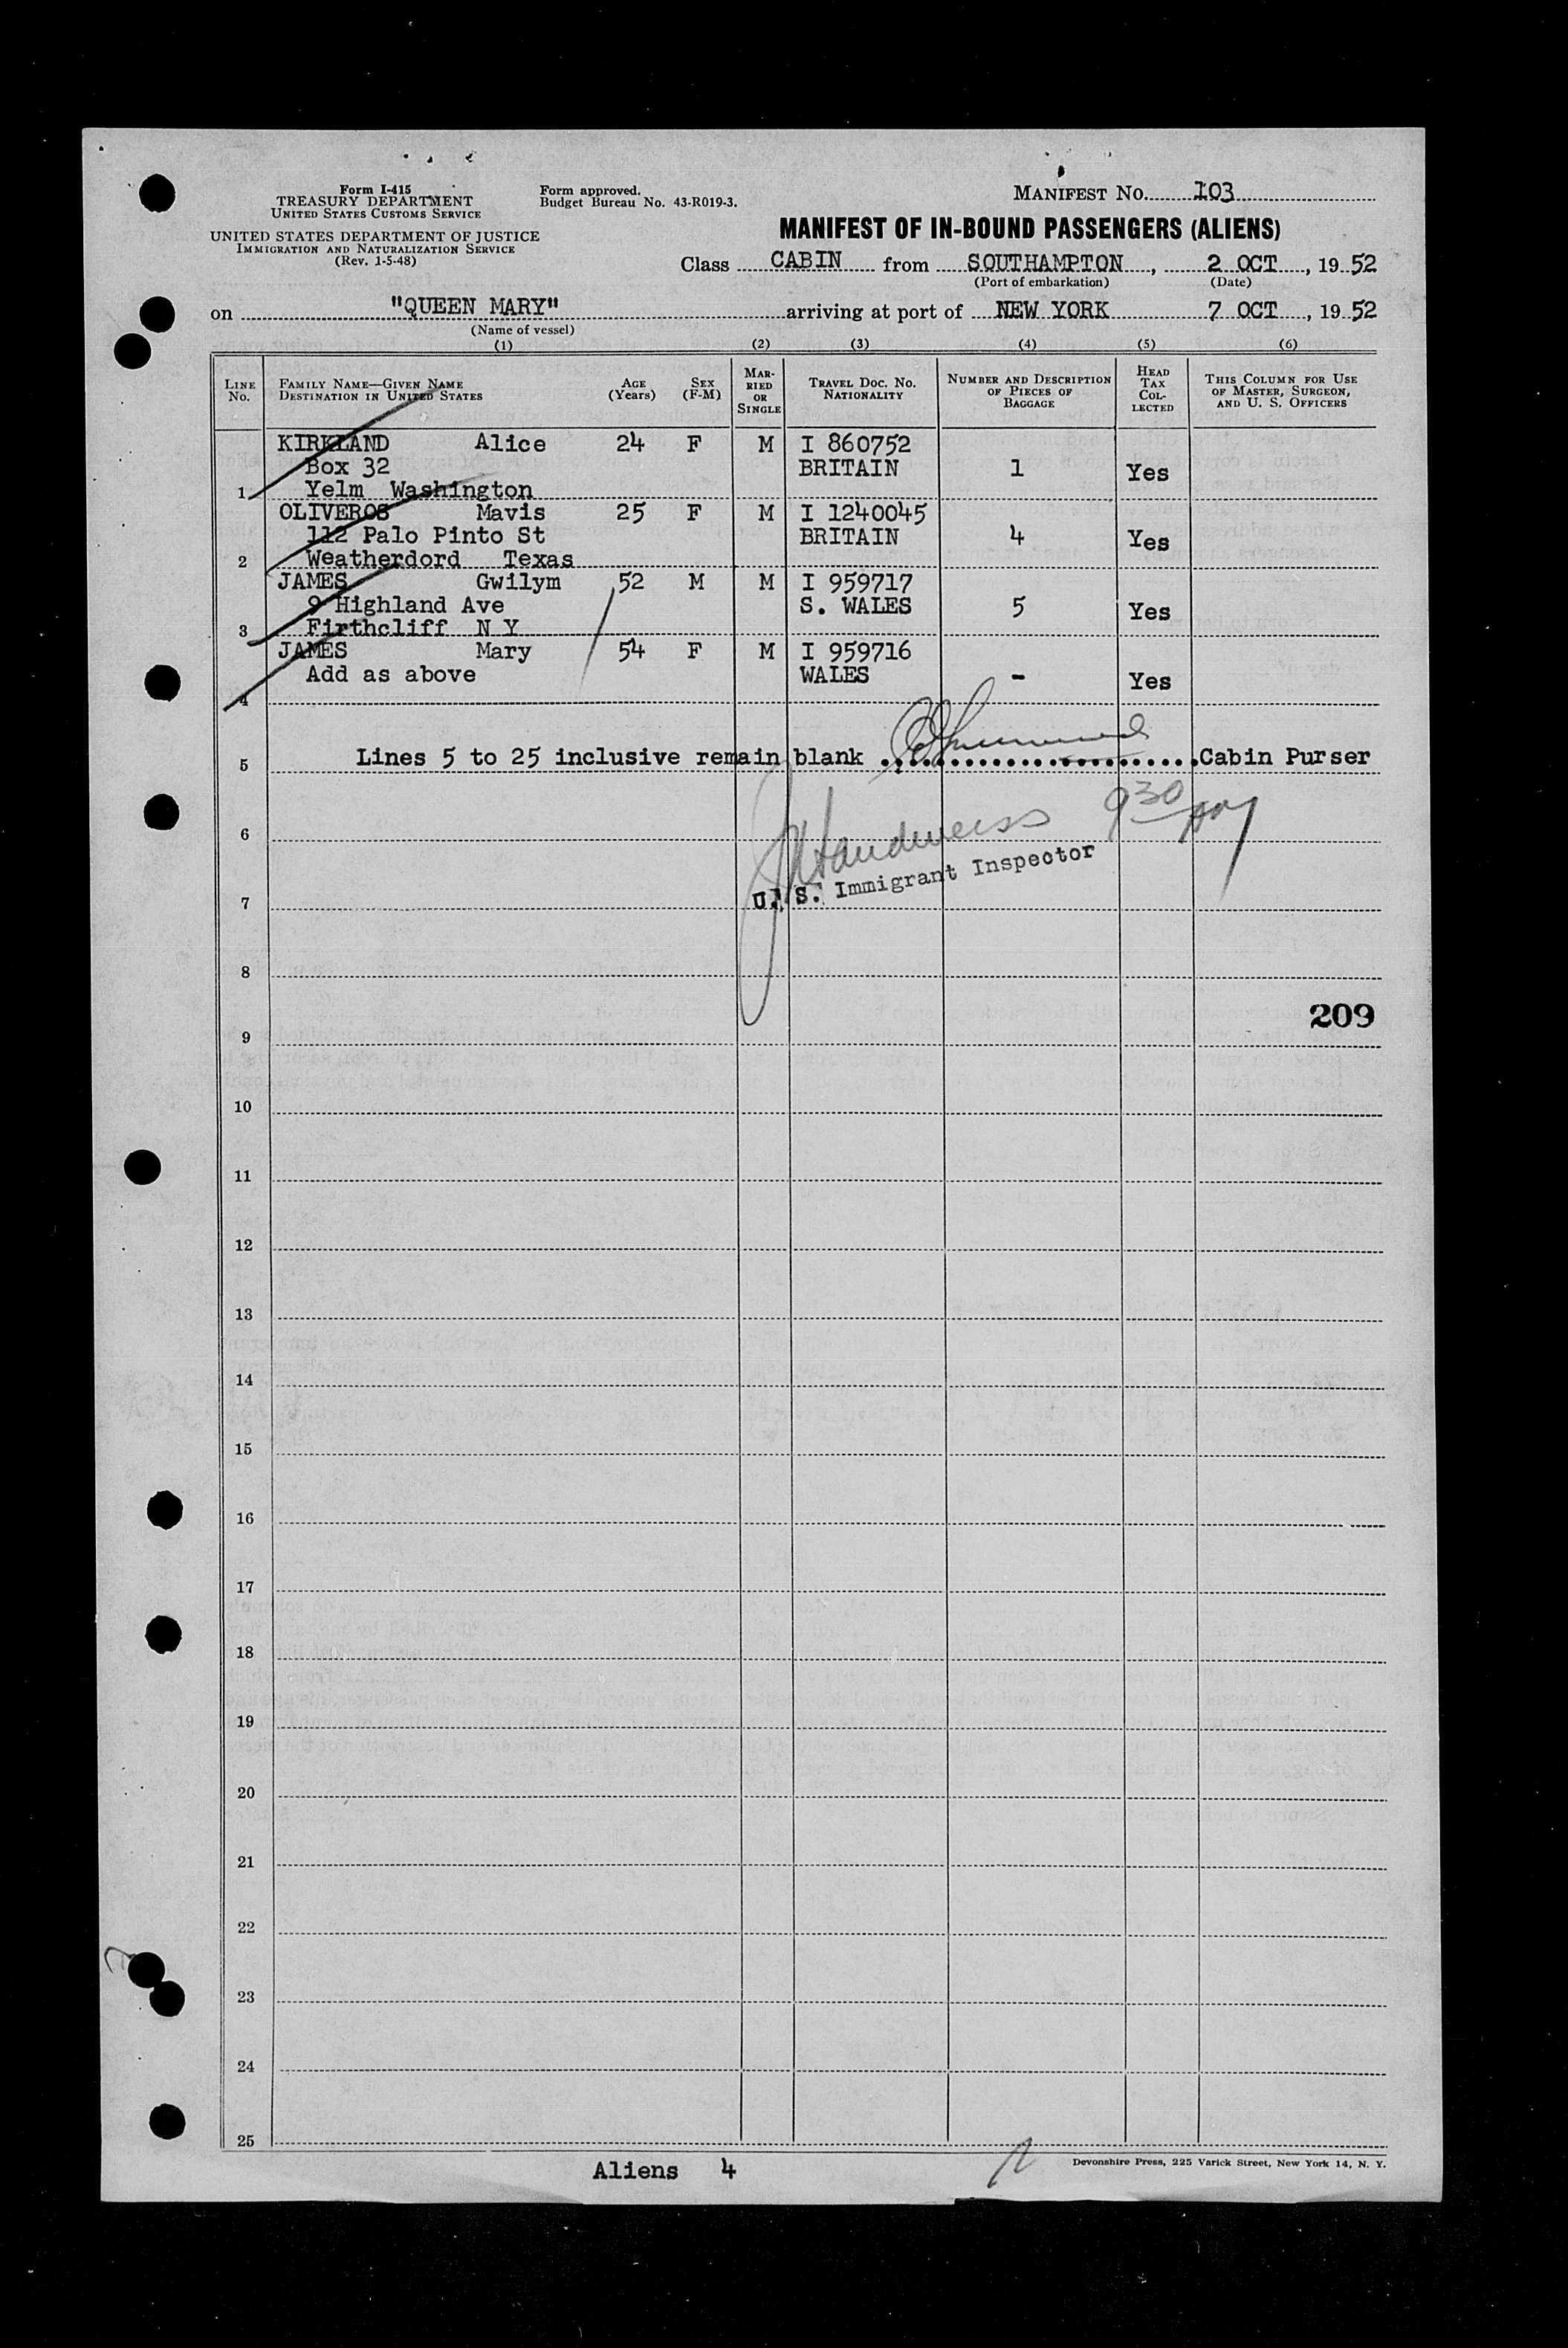 Form I-415
TREASURY DEPARTMENT
UNITED STATES CUSTOMS SERVICE
UNITED STATES DEPARTMENT OF JUSTICE
IMMIGRATION AND NATURALIZATION SERVICE
(Rev. 1-5-48)
Form approved.
Budget Bureau No. 43-R019-3.
MANIFEST NO. 103
MANIFEST OF IN-BOUND PASSENGERS (ALIENS)
Class CABIN from SOUTHAMPTON, 2 OCT, 1952
(Port of embarkation) (Date)
on "QUEEN MARY" arriving at port of NEW YORK 7 OCT, 1952
(Name of vessel)
(1) (2) (3) (4) (5) (6)
LINE No. FAMILY NAME—GIVEN NAME DESTINATION IN UNITED STATES AGE (Years) SEX (F-M) MARRIED OR SINGLE TRAVEL DOC. NO. NATIONALITY NUMBER AND DESCRIPTION OF PIECES OF BAGGAGE HEAD TAX COLLECTED THIS COLUMN FOR USE OF MASTER, SURGEON, AND U. S. OFFICERS
KIRKLAND Alice 24 F M I 860752
Box 32 BRITAIN 1 Yes
1 Yelm Washington
OLIVEROS Mavis 25 F M I 1240045
112 Palo Pinto St BRITAIN 4 Yes
2 Weatherdord Texas
JAMES Gwilym 52 M M I 959717
9 Highland Ave S. WALES 5 Yes
3 Firthcliff N Y
JAMES Mary 54 F M I 959716
Add as above WALES - Yes
4
5 Lines 5 to 25 inclusive remain blank ........................Cabin Purser
6 930
U. S. Immigrant Inspector
7
8
209
9
10
11
12
13
14
15
16
17
18
19
20
21
22
23
24
25
Aliens 4
Devonshire Press, 225 Varick Street, New York 14, N. Y.